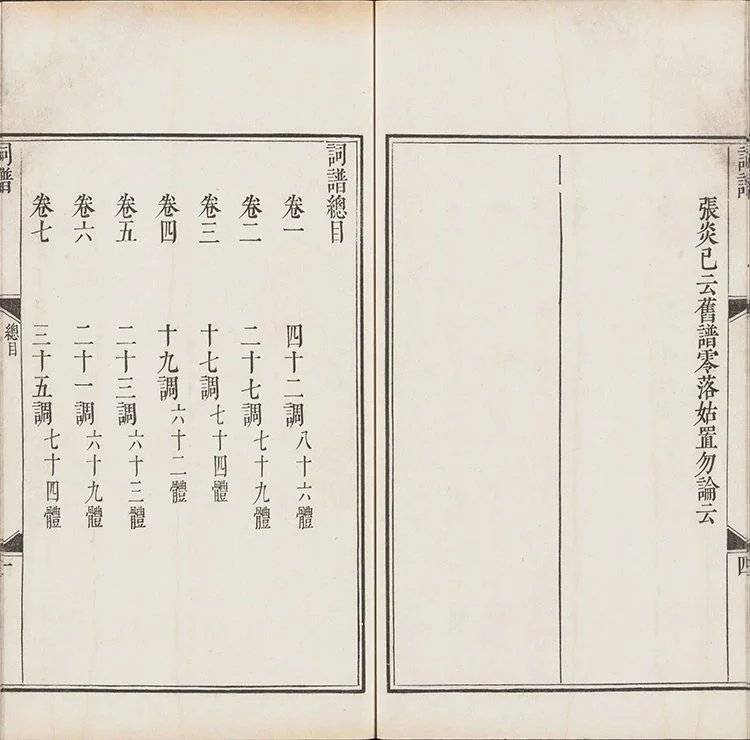 詞譜
張炎已云舊譜零落姑置勿論云
四
詞譜總目
卷一 四十二調 八十六體
卷二 二十七調 七十九體
卷三 十七調 七十四體
卷四 十九調 六十二體
卷五 二十三調 六十三體
卷六 二十一調 六十九體
卷七 三十五調 七十四體
詞譜
總目
一